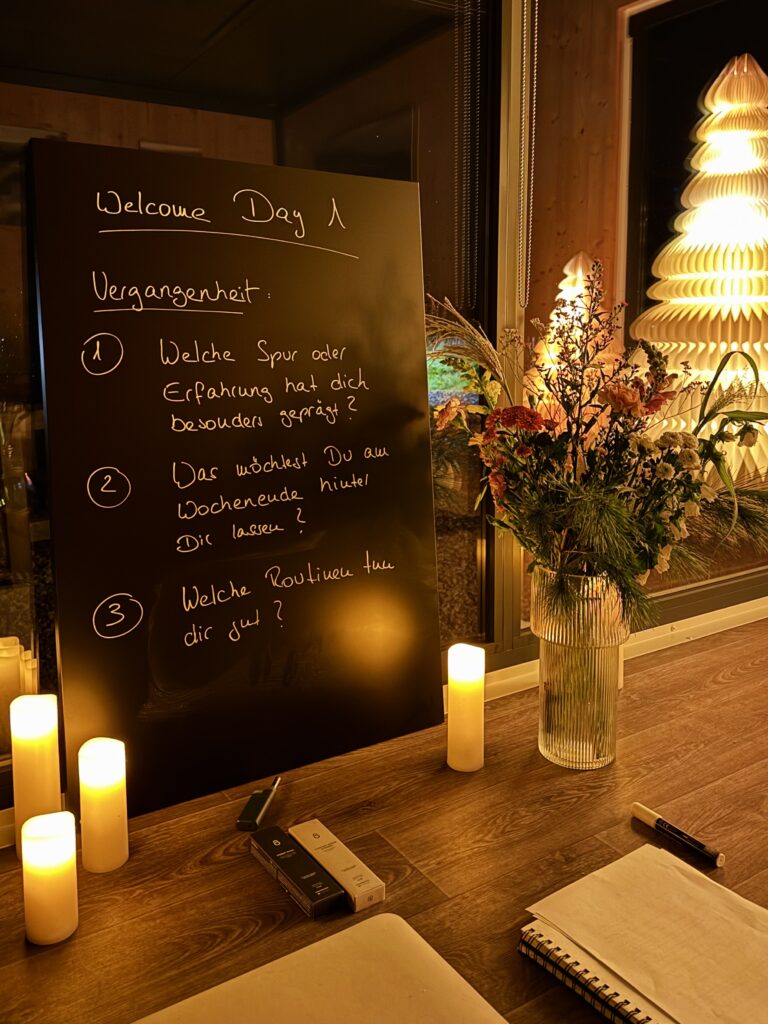 Welcome Day 1
Vergangenheit:
1 Welche Spur oder
Erfahrung hat dich
besonders geprägt?
2 Was möchtest Du am
Wochenende hinter
Dir lassen?
3 Welche Routinen tun
dir gut?